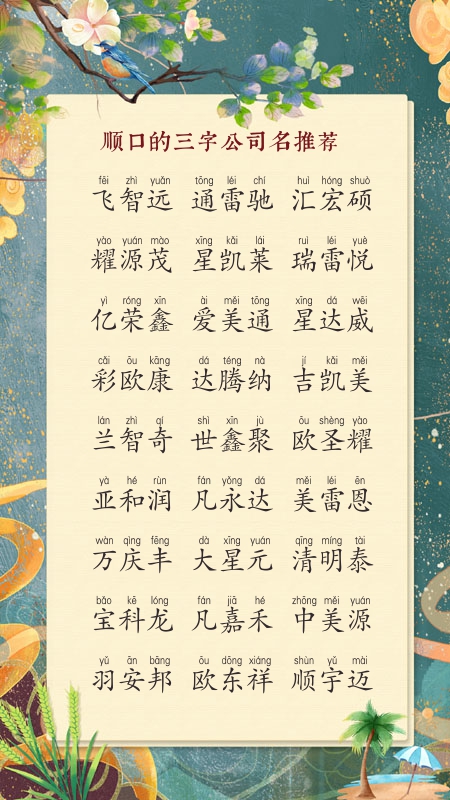 顺口的三字公司名推荐
fēi zhì yuǎn tōng léi chí huì hóng shuò
飞智远 通雷驰 汇宏硕
yào yuán mào xīng kǎi lái ruì léi yuè
耀源茂 星凯莱 瑞雷悦
yì róng xīn ài měi tōng xīng dá wēi
亿荣鑫 爱美通 星达威
cǎi ōu kāng dá téng nà jí kǎi měi
彩欧康 达腾纳 吉凯美
lán zhì qí shì xīn jù ōu shèng yào
兰智奇 世鑫聚 欧圣耀
yà hé rùn fán yǒng dá měi léi ēn
亚和润 凡永达 美雷恩
wàn qìng fēng dà xīng yuán qīng míng tài
万庆丰 大星元 清明泰
bǎo kē lóng fán jiā hé zhōng měi yuán
宝科龙 凡嘉禾 中美源
yǔ ān bāng ōu dōng xiáng shùn yǔ mài
羽安邦 欧东祥 顺宇迈